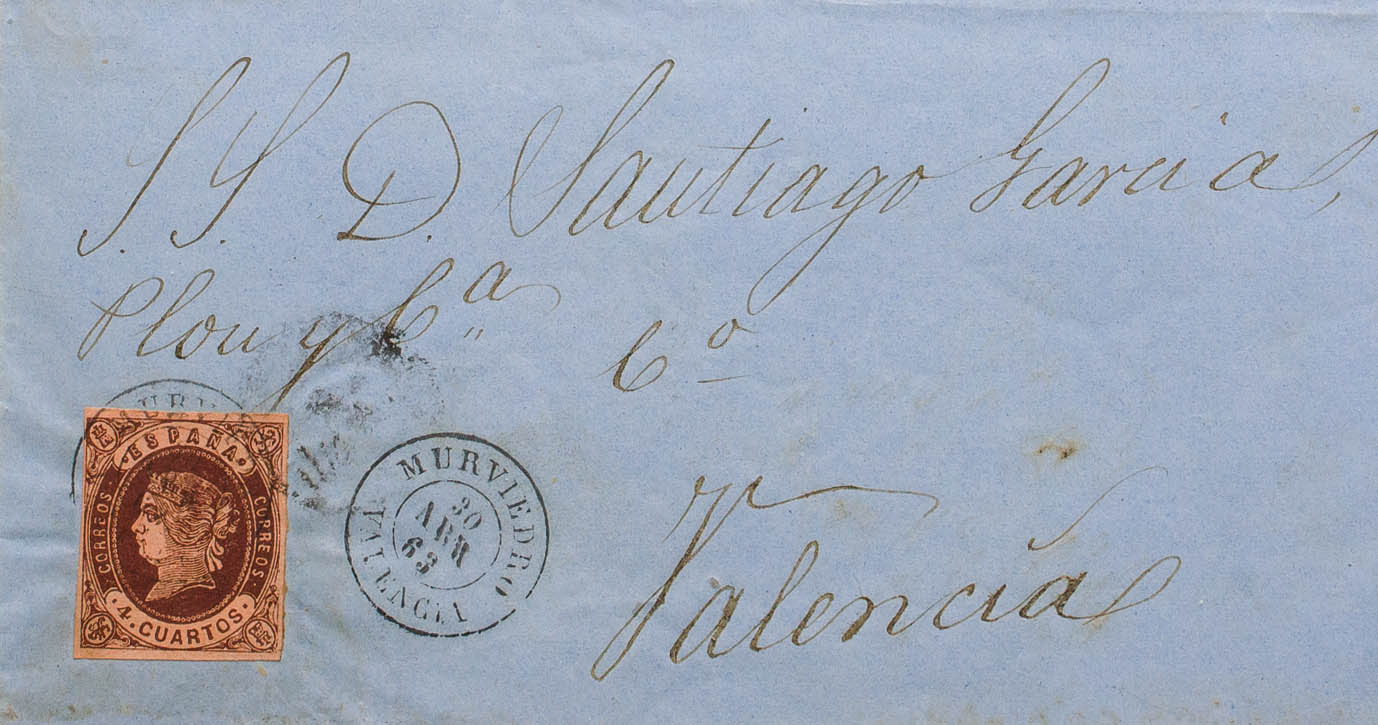 S. S. D. Santiago Garcia,
Plou y Cª
Cº
Valencia
MURVIEDRO
30
ABR
63
VALENCIA
ESPAÑA
CORREOS
CORREOS
4. CUARTOS